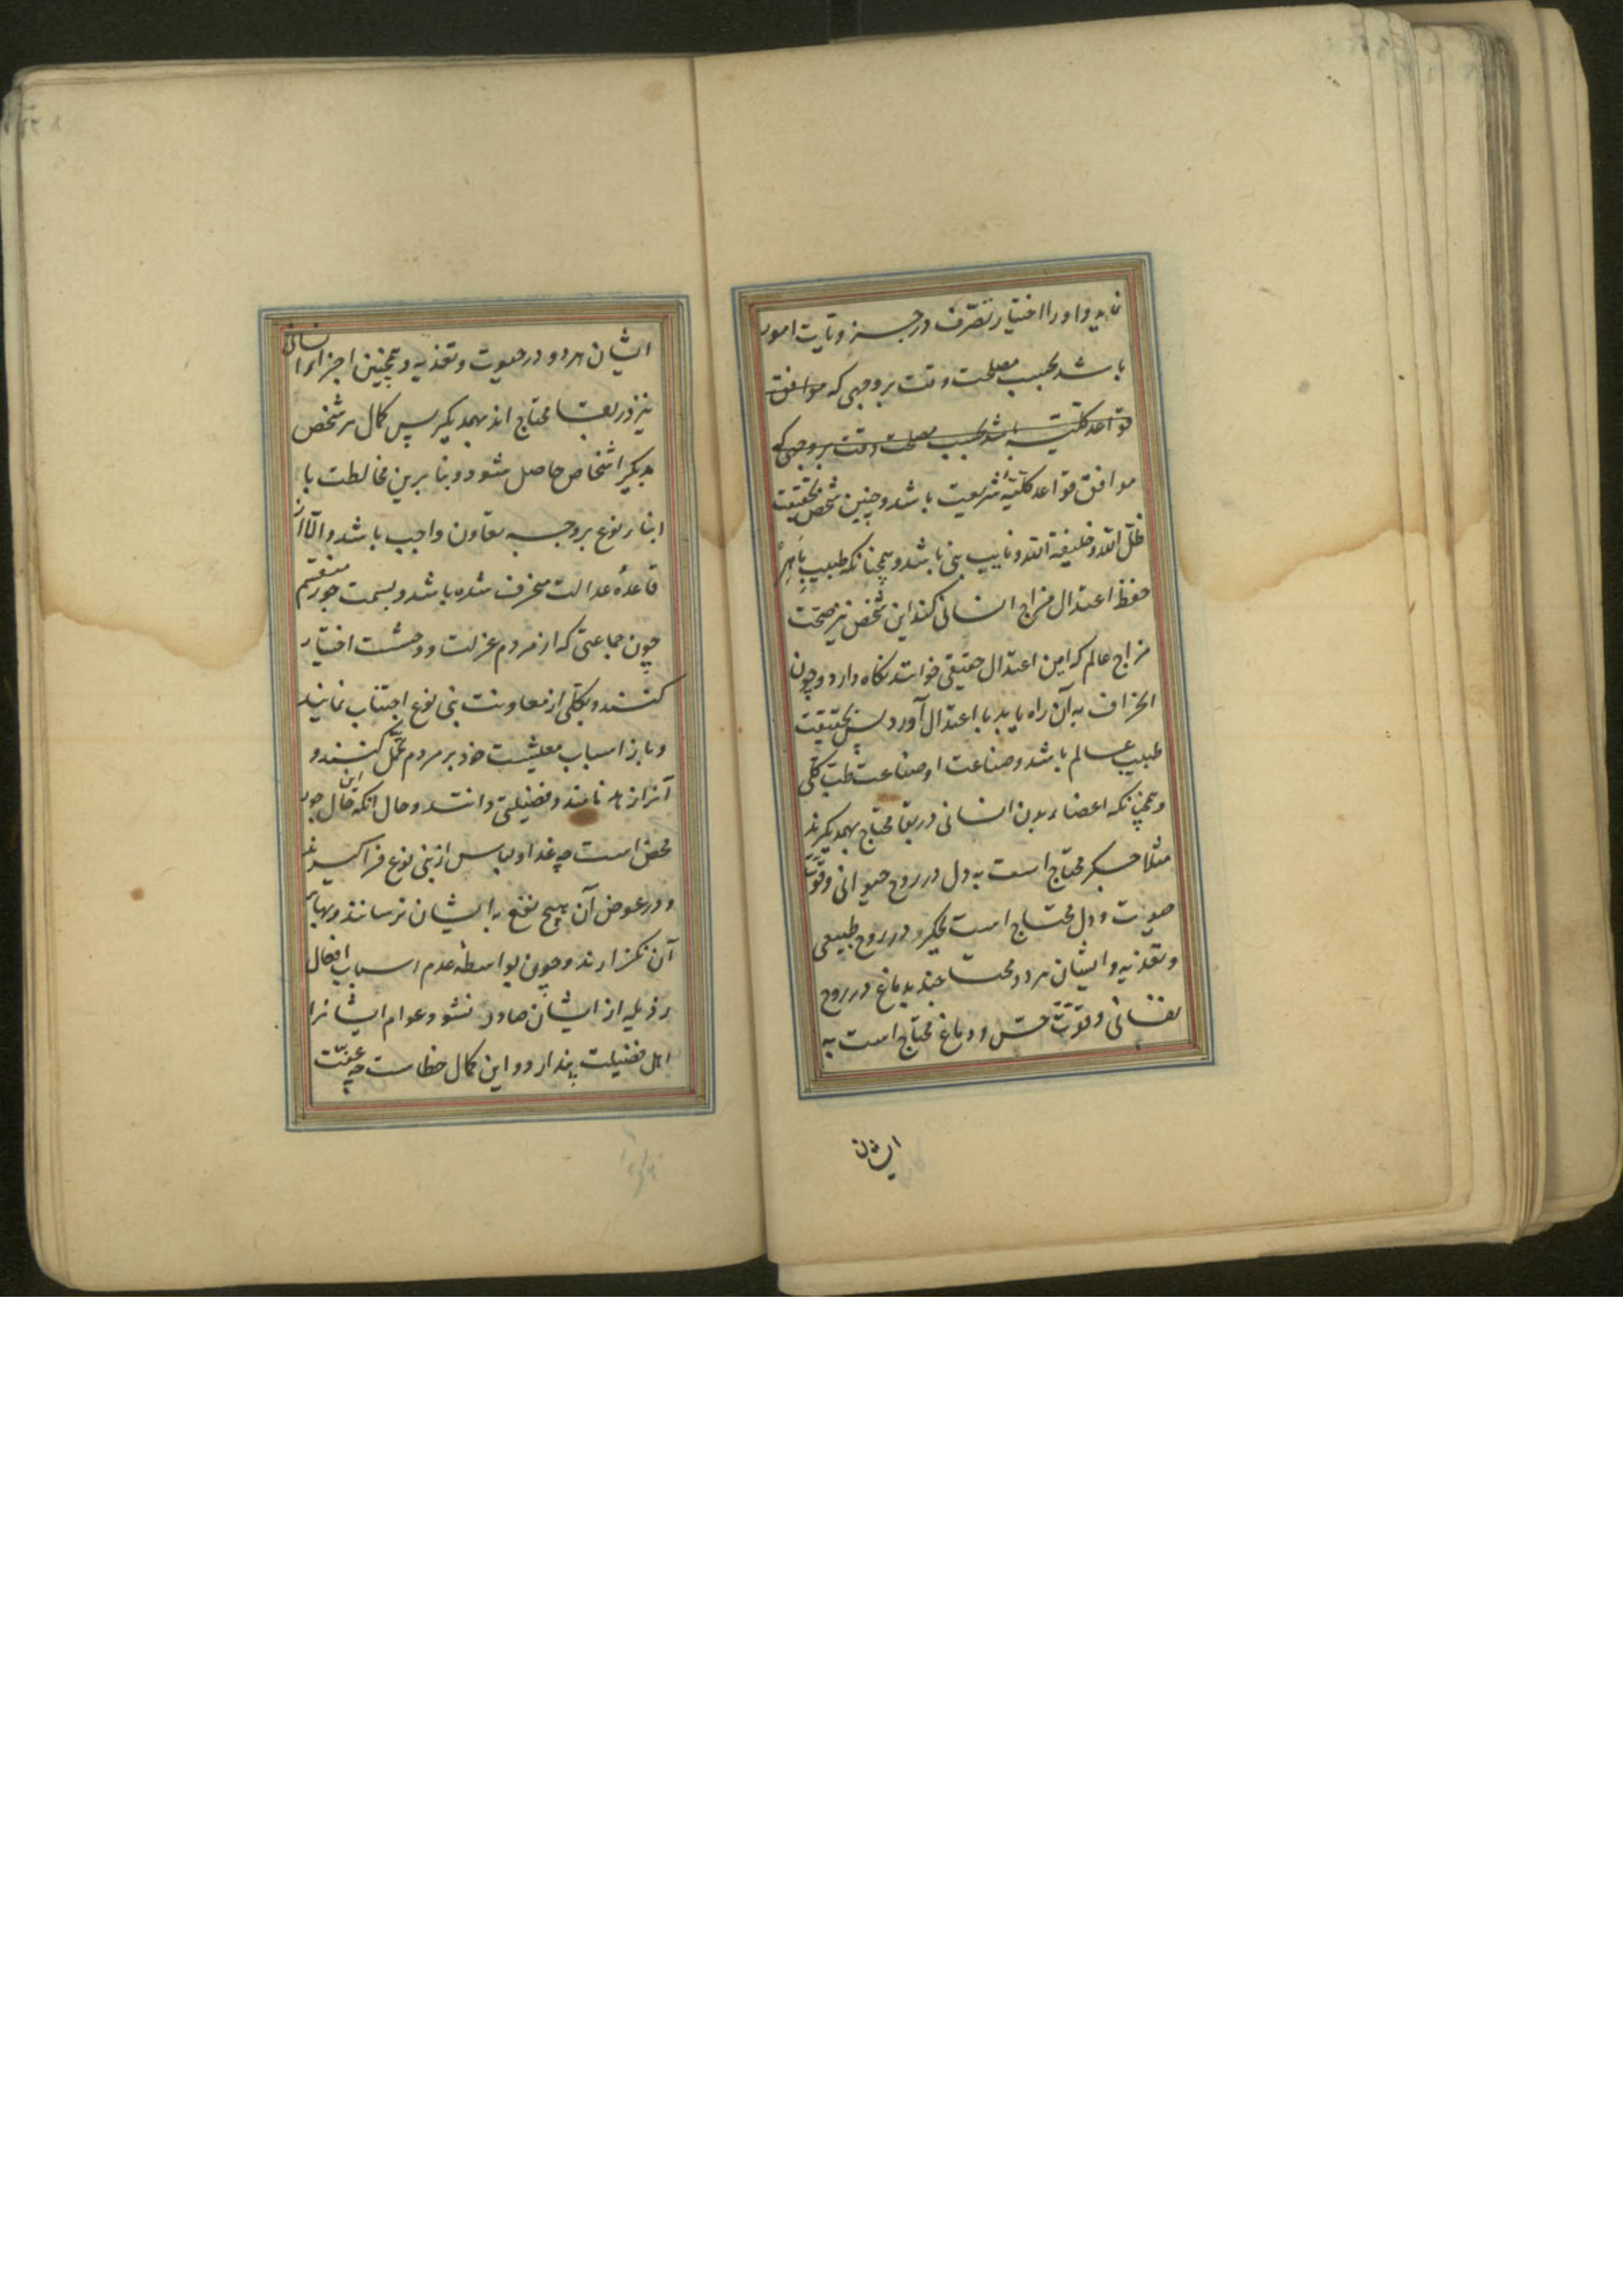 نماید و او را اختیار تصرّف در جزویات امور
باشد بحسب مصلحت وقت بر وجهی که موافق
قواعد کلیّه باشد بحسب مصلحت وقت بر وجهی که
موافق قواعد کلیّهٔ شریعت باشد و چنین شخص بحقیقت
ظلّ الله و خلیفة الله و نایب نبی باشد و همچنانکه طبیب ماهر
حفظ اعتدال مزاج انسانی کند این شخص نیز صحّت
مزاج عالم که این اعتدال حقیقی خوانند نگاه دارد و چون
انحراف به آن راه یابد با اعتدال آورد پس بحقیقت
طبیب عالم باشد و صناعت او صناعت طبّ کلّی
و همچنانکه اعضاء بدن انسانی در بقا محتاج بهمدیگرند
مثلا جگر محتاج است به دل در روح حیوانی و قوّت
حیوت و دل محتاج است بجگر در روح طبیعی
و تغذیه و ایشان هر دو محتاجند بدماغ در روح
نفسانی و قوّت حسّ و دماغ محتاج است به
ایشان
ایشان هر دو در حیوت و تغذیه و همچنین اجزاء انسانی
نیز در بقا محتاج اند بهمدیگر پس کمال هر شخص
بدیگر اشخاص حاصل شود و بنابرین مخالطت با
ابناء نوع بر وجه تعاون واجب باشد و الّا از
قاعدهٔ عدالت منحرف شده باشد و بسمت جور متّسم
چون جماعتی که از مردم عزلت و وحشت اختیار
کنند و بکلّی از معاونت بنی نوع اجتناب نمایند
و بار اسباب معیشت خود بر مردم تحمیل کنند و
آنرا زهد نامند و فضیلتی دانند و حال آنکه این حال جور
محض است چه غذا و لباس از بنی نوع فراگیرند
و در عوض آن هیچ نفع به ایشان نرسانند و بهای
آن نگزارند و چون بواسطه عدم اسباب افعال
رذیله از ایشان صادر نشود عوام ایشانرا
اهل فضیلت پندارد و این کمال خطاست چه عفّت